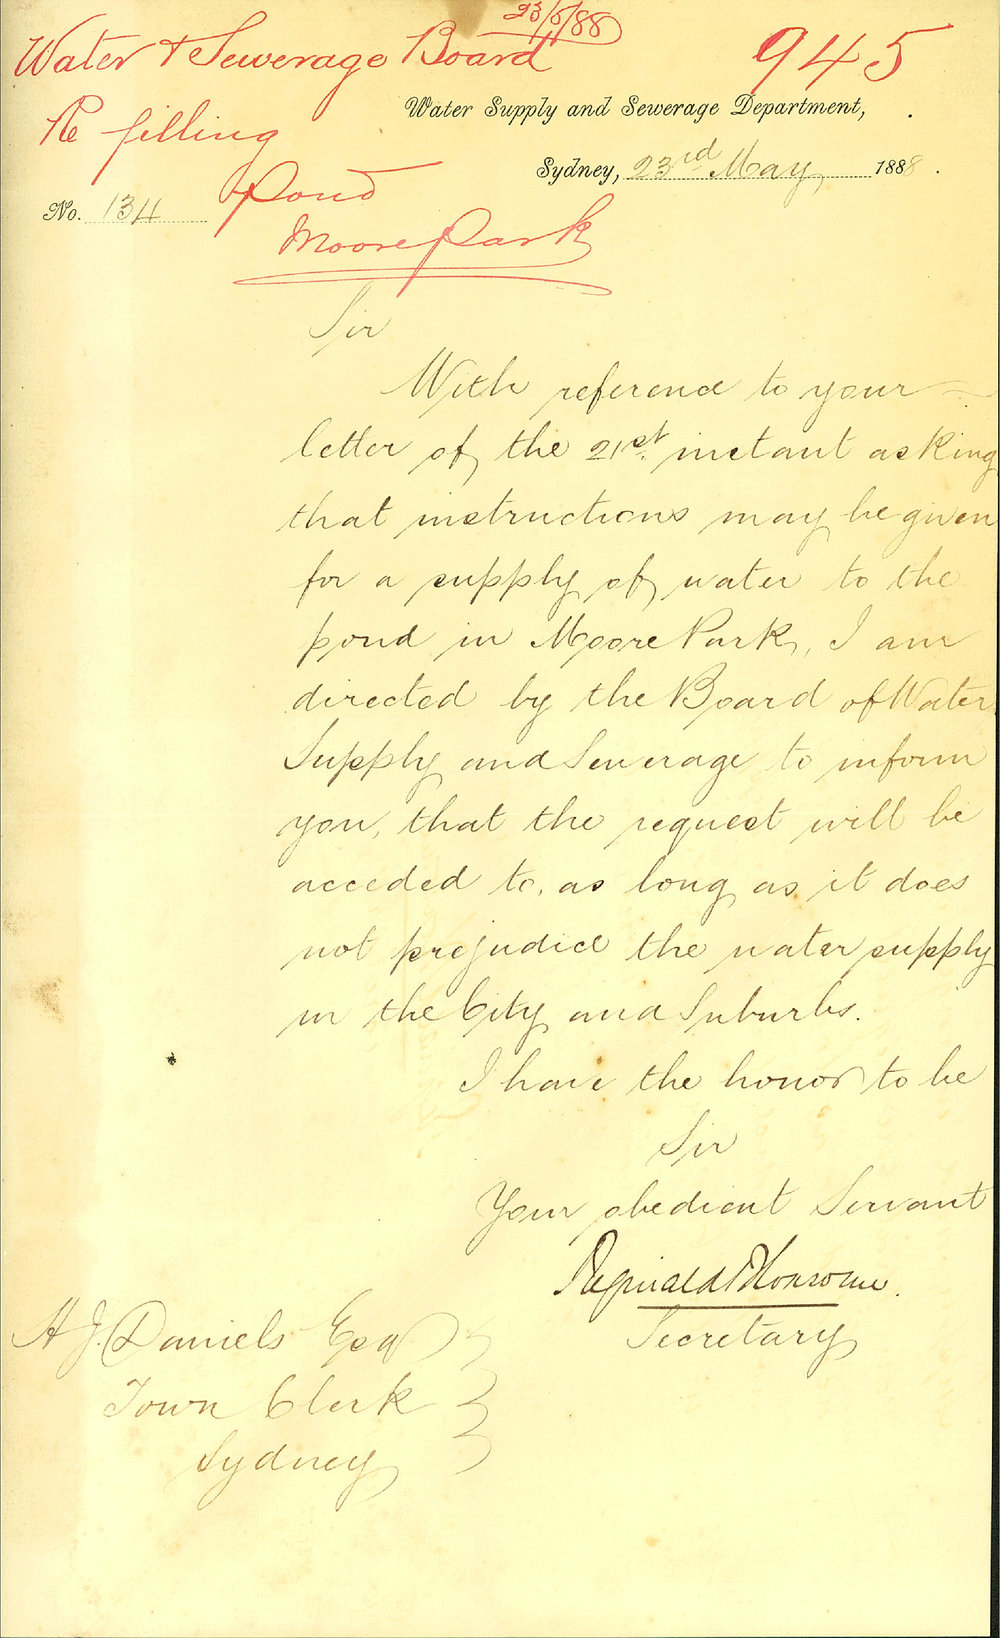 23/5/88
Water & Sewerage Board
945
Re filling
Pond
Moore Park
Water Supply and Sewerage Department,
Sydney, 23rd May 1888.
No. 134
Sir
With reference to your
letter of the 21st instant asking
that instructions may be given
for a supply of water to the
pond in Moore Park, I am
directed by the Board of Water
Supply and Sewerage to inform
you, that the request will be
acceded to, as long as it does
not prejudice the water supply
in the City and Suburbs.
I have the honor to be
Sir
Your obedient Servant
Reginald
Secretary
H J. Daniels Esq
Town Clerk
Sydney